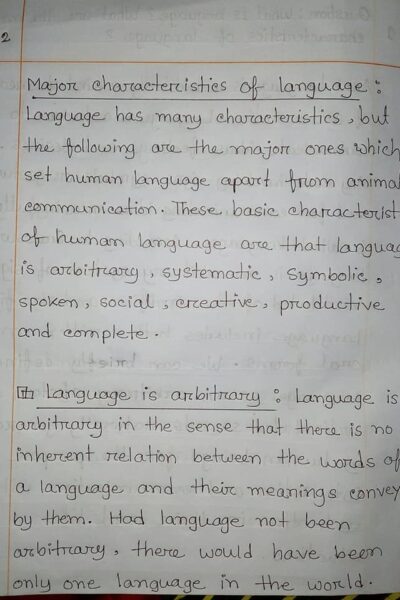 2
Major characteristics of language :
Language has many characteristics, but
the following are the major ones which
set human language apart from animal
communication. These basic characterist
of human language are that languag
is arbitrary, systematic, symbolic,
spoken, social, creative, productive
and complete.
Language is arbitrary : Language is
arbitrary in the sense that there is no
inherent relation between the words of
a language and their meanings convey
by them. Had language not been
arbitrary, there would have been
only one language in the world.